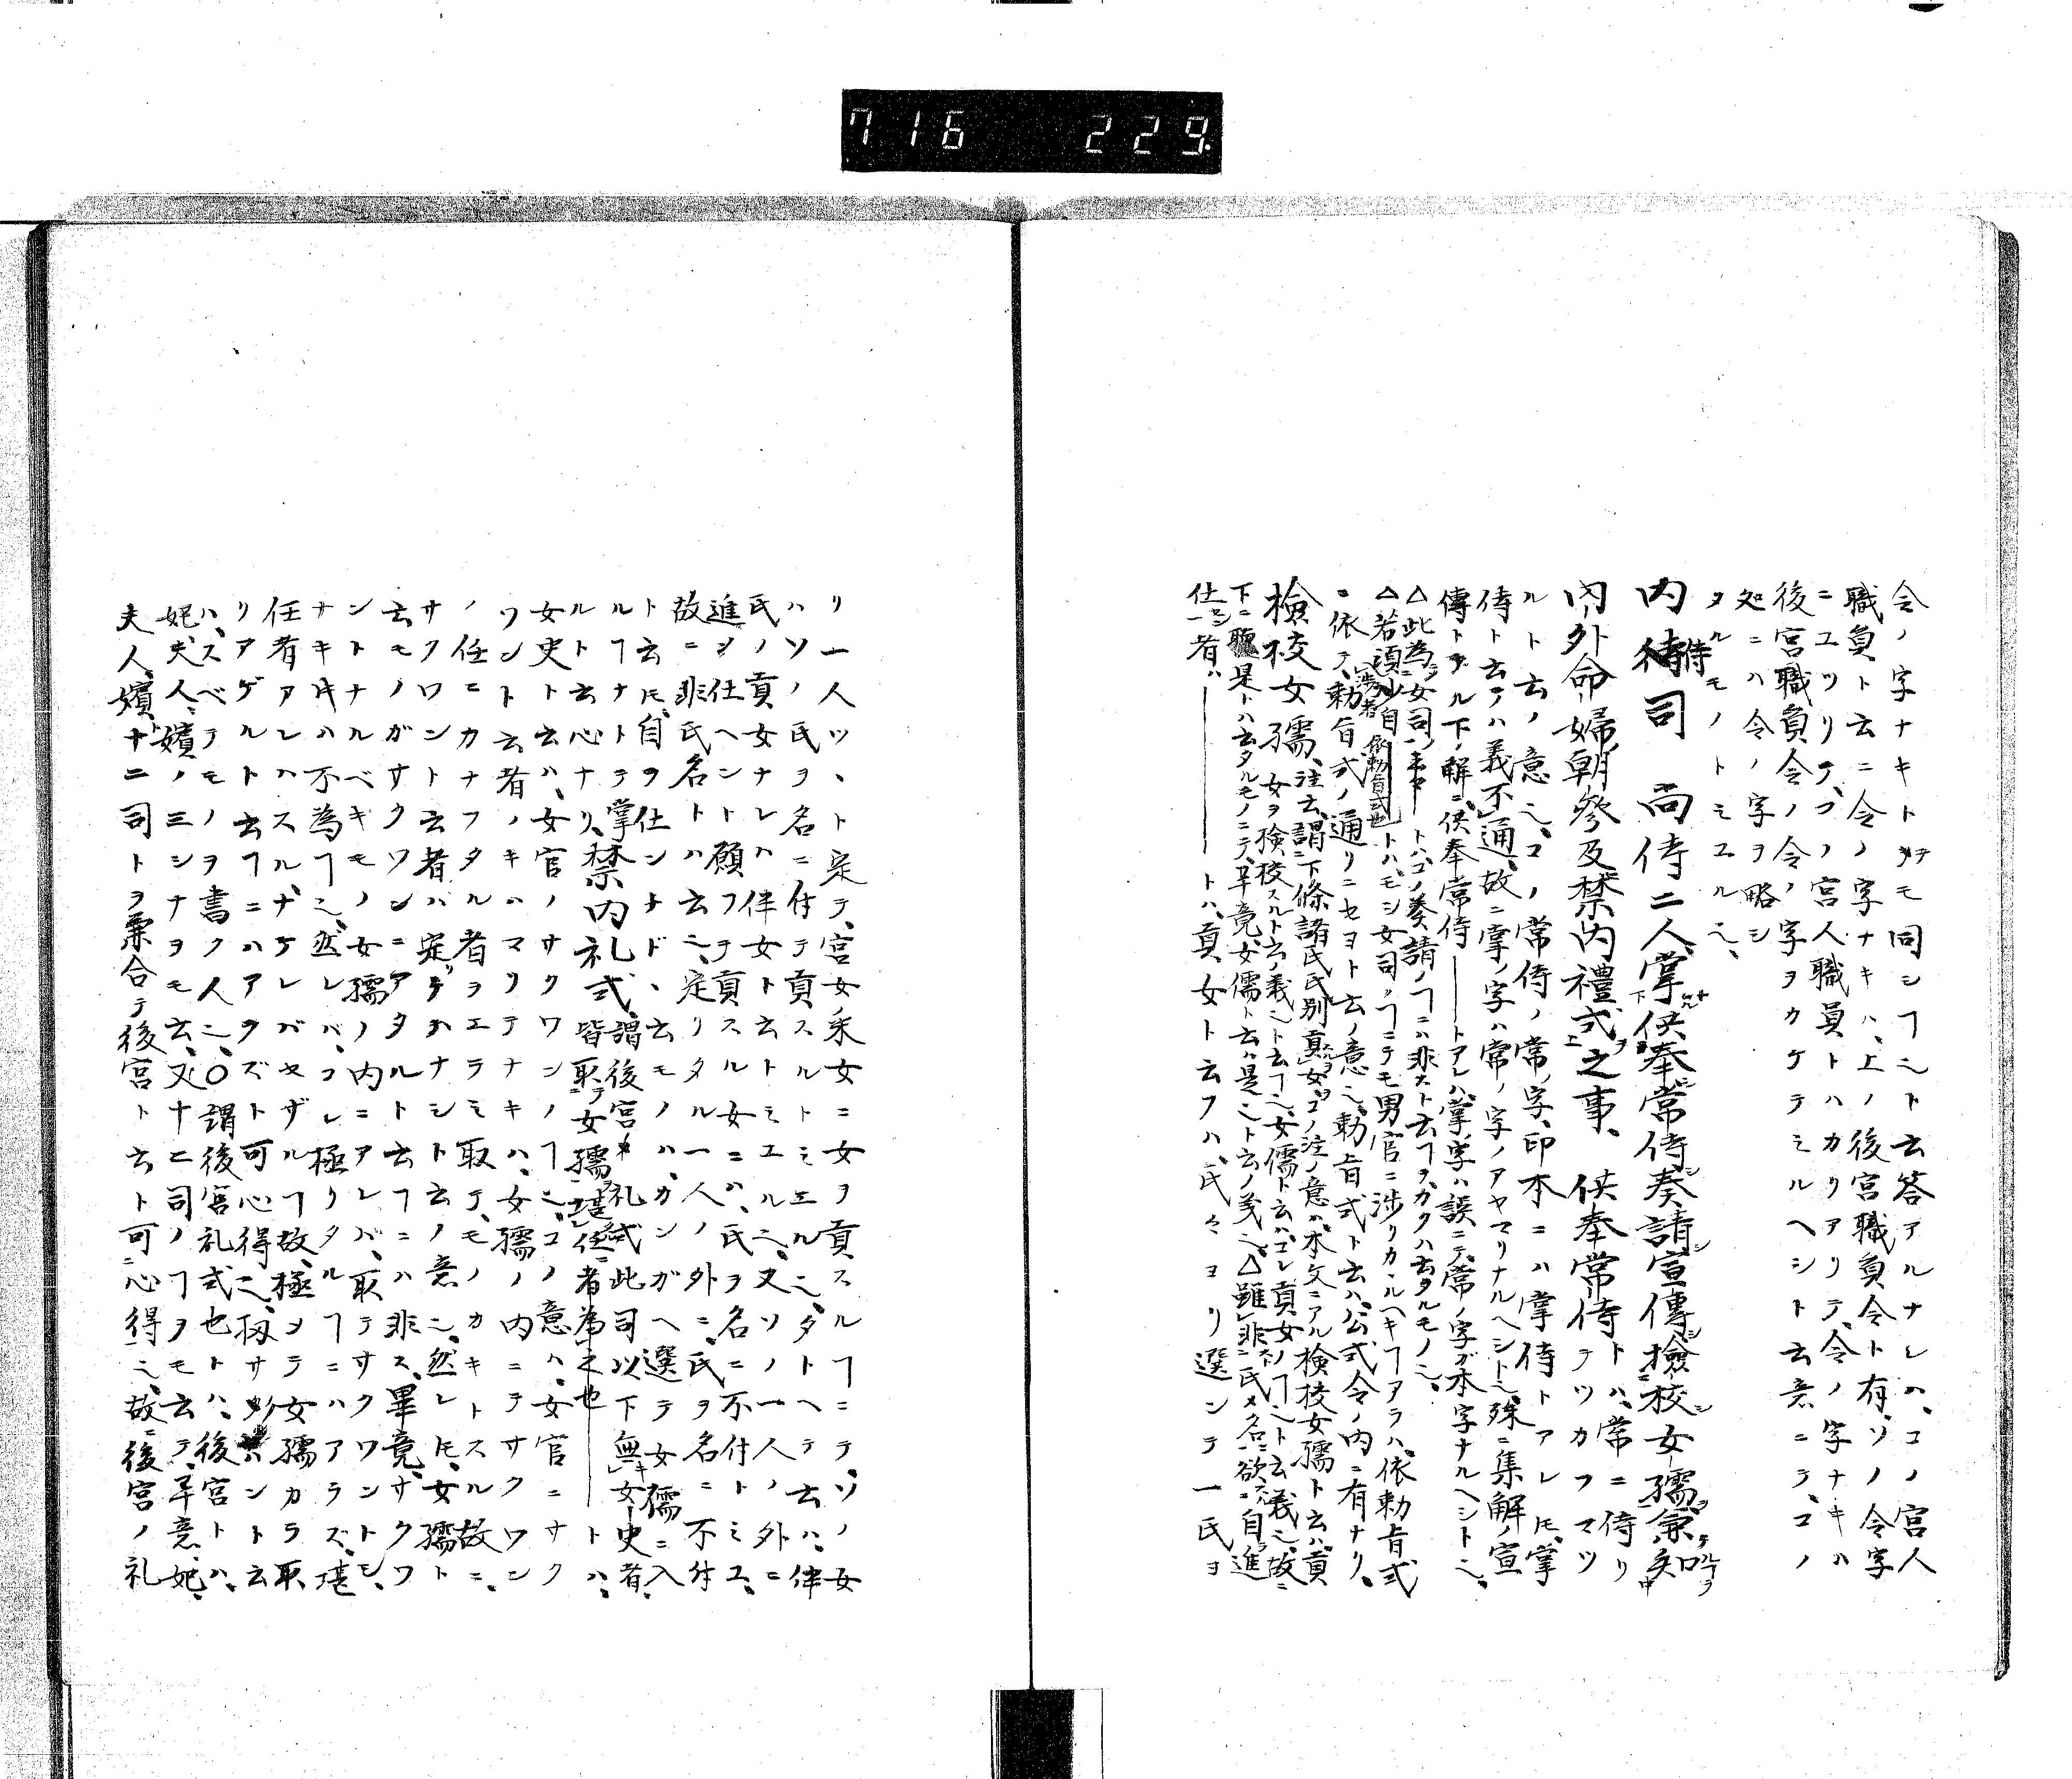 716 229
令ノ字ナキトテモ同シヿ也ト云答アルナレハ、コノ宮人
職員ト云ニ令ノ字ナキハ、上ノ後宮職員令ト有、ソノ令字
ニユツリテ、コノ宮人職員トハカリアリテ、令ノ字ナキハ
後宮職員令ノ令ノ字ヲカケテミルヘシト云意ニテ、コノ
処ニハ令ノ字ヲ略シ
タルモノトミユル也、
内侍司 尚侍二人、掌供奉常侍奏請宣傳檢校女孺、兼知
内外命婦朝參及禁内禮式之事、 供奉常侍トハ、常ニ侍リテツカフマツ
ルト云ノ意也、コノ常侍ノ常ノ字、印本ニハ掌侍トアレ𪜈、掌
侍ト云テハ義不通、故ニ掌ノ字ハ常ノ字ノアヤマリナルヘシト也、殊ニ集解ノ宣
傳トアル下ノ解ニ、供奉常侍――トアレハ、掌ノ字ハ誤ニテ、常ノ字ガ本字ナルヘシト也、
△此為女司――トハ、コノ奏請ノヿニハ非スト云ヿヲ、カクハ云タルモノ也、
△若須 自依勅旨式也トハ、モシ女司ノヿニテモ男官ニ渉リカヽルヘキヿアラハ、依勅旨式
ニ依テ、勅旨式ノ通リニセヨト云ノ意也、勅旨式ト云ハ、公式令ノ内ニ有ナリ、
檢校女孺、 女ヲ検校スルト云ノ義也ト云ヿ也、女儒ト云ハ、コレ貢女ノヿ也ト云義也、故ニ
注云、謂下條諸氏氏別貢女、コノ注ノ意ハ、本文ニアル検校女孺ト云ハ、貢
下ニ 是トハ云タルモノニテ、畢竟女儒ト云ハ是也ト云ノ義也、△雖非氏名欲自進
仕者ハ――トハ、貢女ト云フハ、氏々ヨリ選ンテ一氏ヨ
リ一人ツヽト定テ、宮女采女ニ女ヲ貢スルヿニテ、ソノ女
ハソノ氏ヲ名ニ付テ貢スルトミエル也、タトヘテ云ハ、伴
氏ノ貢女ナレハ伴女ト云トミエル也、又ソノ一人ノ外ニ
進ヲ仕ヘント願フテ貢スル女ニハ、氏ヲ名ニ不付トミユ、
故ニ非氏名トハ云也、定リタル一人ノ外ニ、氏ヲ名ニ不付
ト云𪜈、自ヲ仕ントナド、云モノハ、カンガヘ選テ女孺ニ入
ルヿナトテ掌禁内礼式、謂後宮礼式、此司以下無女史者、
ルト云心ナリ、 皆取女孺堪任者為之也――トハ、
女史ト云ハ、女官ノサクワンノヿ也、コノ意ハ、女官ニサク
ワント云者ノキハマリテナキハ、女孺ノ内ニテサクワン
ノ任ニカナフタル者ヲエラミ取テ、モノカキトスル故ニ、
サクワント云者ハ定リテハナシト云ノ意也、然レ𪜈、女孺ト
云モノガサクワンニアタルト云ヿニハ非ス、畢竟、サクワ
ントナルベキモノ、女孺ノ内ニアレバ、取テサクワントモ、
ナキ時ハ不為ヿ也、然レバ、コレ極リタルヿニハアラズ、堪
任者アレハスルナケレバセザルヿ故、極ヲテ女孺カラ取
リアゲルト云ヿニハアラズト可心得也、扨サクハント云
ハ、スベテモノヲ書ク人也、○謂後宮礼式也トハ、後宮トハ、
妃、夫人、嬪ノ三シナヲモ云、又十二司ノヿヲモ云テ、畢竟、妃、
夫人、嬪、ト十二司トヲ兼合テ後宮ト云ト可心得也、故後宮ノ礼